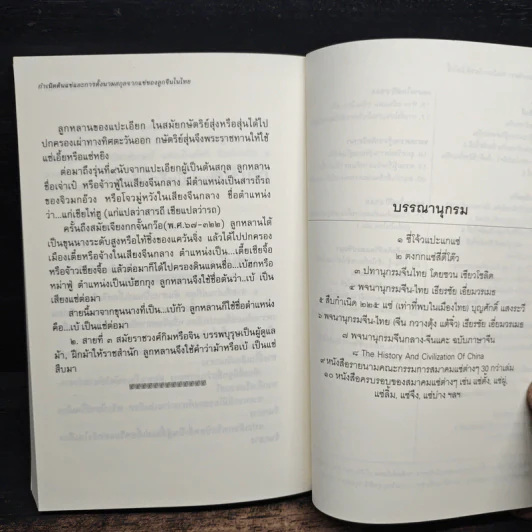 กำเนิดต้นแซ่และการตั้งนามสกุลจากแซ่ของลูกจีนในไทย
ลูกหลานของแปะเอียก ในสมัยกษัตริย์สุ่งหรือสุ่นได้ไป
ปกครองเผ่าทางทิศตะวันออก กษัตริย์สุ่นจึงพระราชทานให้ใช้
แซ่เอี้ยหรือแซ่หยิง
ต่อมาถึงรุ่นที่๙นับจากแปะเอียกผู้เป็นต้นสกุล ลูกหลาน
ชื่อเจ่าเป๋ หรือจ้าวฟู่ในเสียงจีนกลาง มีตำแหน่งเป็นสารถีรถ
ของจิวมกอ๊วง หรือโจวมู่หวังในเสียงจีนกลาง ชื่อตำแหน่ง
ว่า...แก่เชียไท่ฮู (แก่แปลว่าสารถี เชียแปลว่ารถ)
ครั้นถึงสมัยเจียงจกกั๋นก๊วอ(พ.ศ.๖๗-๓๒๒) ลูกหลานได้
เป็นขุนนางระดับสูงหรือไท้ชิ่งของแคว้นจิ้ง แล้วได้ไปปกครอง
เมืองเตี๋ยหรือจ้างในเสียงจีนกลาง ตำแหน่งเป็น...เตี๋ยเซียจื้อ
หรือจ้าวเชียงจื้อ แล้วต่อมาก็ได้ไปครองดินแดนชื่อ...เบ๊ฮกหรือ
หม่าฟู่ ตำแหน่งเป็นเบ๊ฮกกุง ลูกหลานจึงใช้ชื่อต้นว่า...เบ๊ เป็น
เสียงแซ่ต่อมา
สายนี้มาจากขุนนางที่เป็น...เบ๊กัว ลูกหลานก็ใช้ชื่อตำแหน่ง
คือ...เบ๊ เป็นแซ่ต่อมา
๒. สายที่ ๓ สมัยราชวงศ์กิมหรือจิน บรรพบุรุษเป็นผู้ดูแล
ม้า, ฝึกม้าให้ราชสำนัก ลูกหลานจึงใช้คำว่าม้าหรือเบ๊ เป็นแซ่
สืบมา
#############
บรรณานุกรม
๑ ซี่โจ้วแปะแกแซ่
๒ ตงกกแซ่สี่ตี้โต้ว
๓ ปทานุกรมจีนไทย โดยชวน เซียวโชลิต
๔ พจนานุกรมจีน-ไทย เธียรชัย เอี่ยมวรเมธ
๕ สืบกำเนิด ๒๒๕ แซ่ (เท่าที่พบในเมืองไทย) บุญศักดิ์ แสงระวี
๖ พจนานุกรมจีน-ไทย (จีน กวางตุ้ง แต้จิ๋ว) เธียรชัย เอี่ยมวรเมธ
๗ พจนานุกรมจีนกลาง-จีนแคะ ฉบับภาษาจีน
๘ The History And Civilization Of China
๙ หนังสือรายนามคณะกรรมการสมาคมแซ่ต่างๆ 30 กว่าเล่ม
๑๐ หนังสือครบรอบของสมาคมแซ่ต่างๆ เช่น แซ่ตั้ง, แซ่ฝู,
แซ่ลิ้ม, แซ่จึง, แซ่บ่าง ฯลฯ